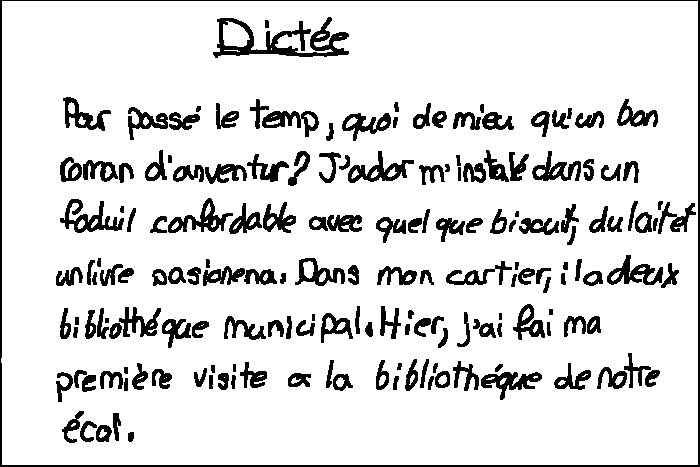 Dictée
Pour passé le temp, quoi de mieu qu'un bon
roman d'anventur? J'ador m'instalé dans un
foduil confordable avec quel que biscuit, du lait et
un livre pasionena. Dans mon cartier, il a deux
bibliothéque municipal. Hier, j'ai fai ma
première visite a la bibliothéque de notre
écol.